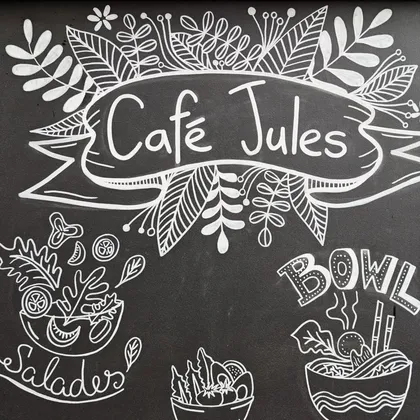 Café Jules
BOWL
Salades